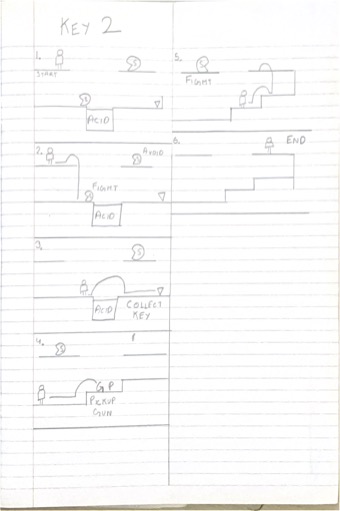 KEY 2
1.
START
S
S
ACID
2.
AVOID
S
FIGHT
S
ACID
3.
S
ACID
COLLECT
KEY
4.
S
G P
PICKUP
GUN
5.
S
FIGHT
6.
END